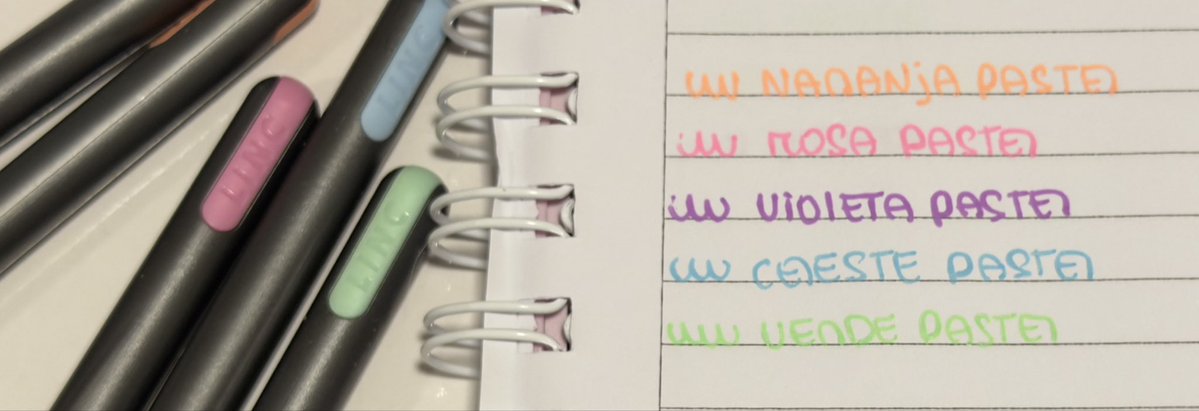 LINC
LINC
LINC
uw NARANJA PASTEl
uw ROSA PASTEl
uw VIOlETA PASTEl
uw CElESTE PASTEl
uw VERDE PASTEl